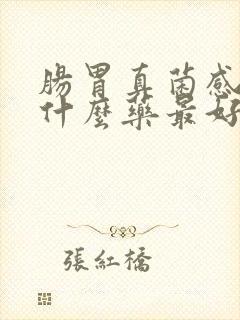 腸胃真菌感
什麼藥最好
張紅橋